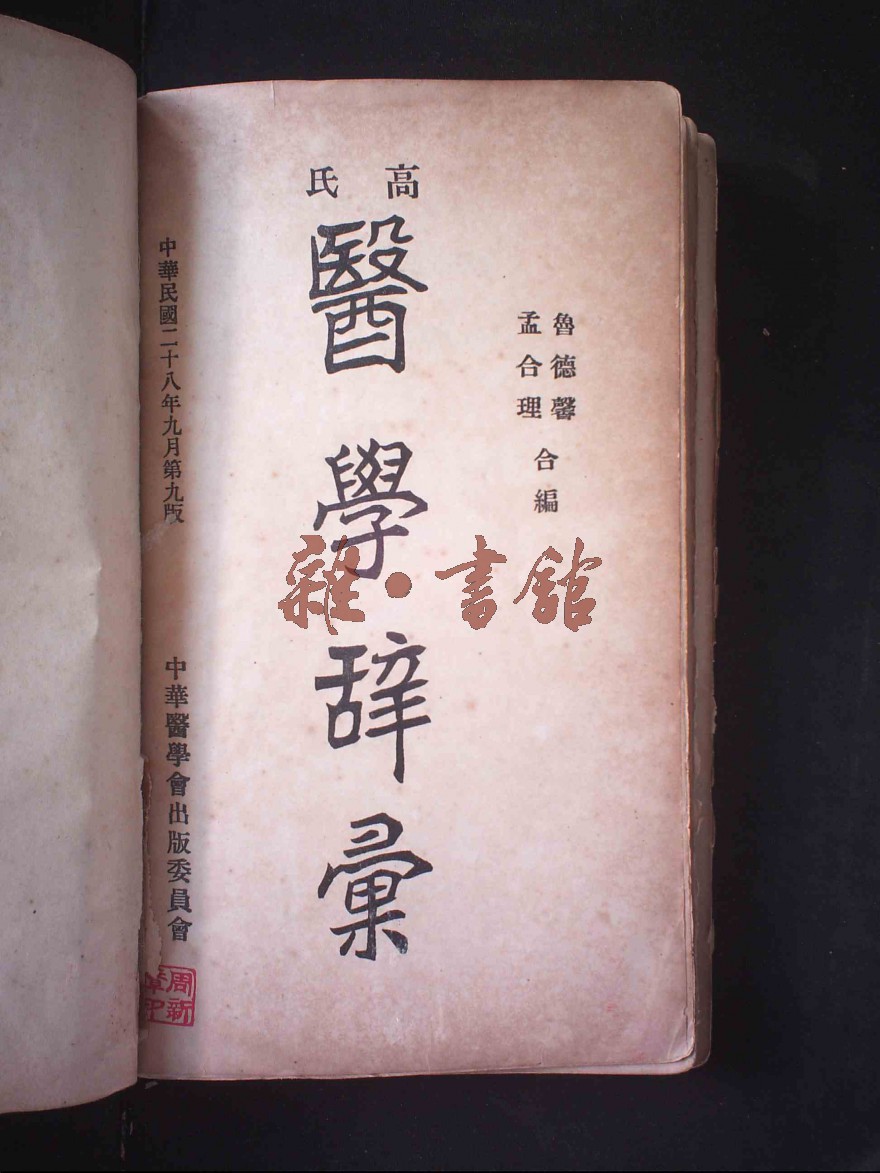 高氏
醫學辭彙
魯德馨
孟合理
合編
中華民國二十八年九月第九版
中華醫學會出版委員會
雜·書館
周新
印